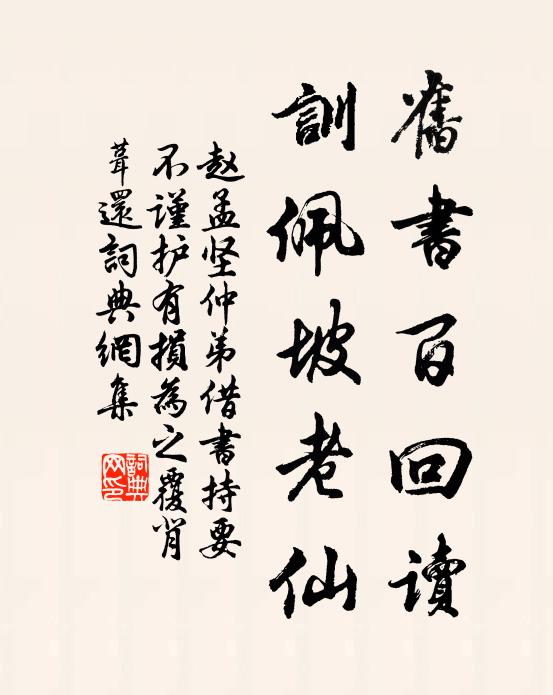 舊書百回读
訓佩坡老仙
赵孟坚仲弟借書持要
不谨护有損為之覆肖
葺還詞典網集
詞典网印